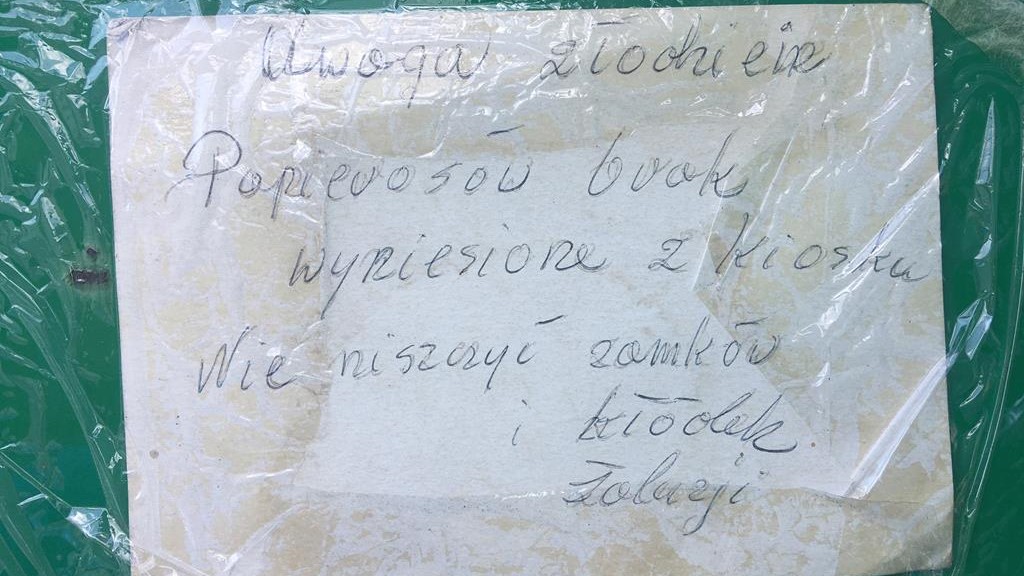 Uwoga złodzieje
Papierosów brak
wyniesione z kiosku
Nie niszczyć zamków
i kłódek